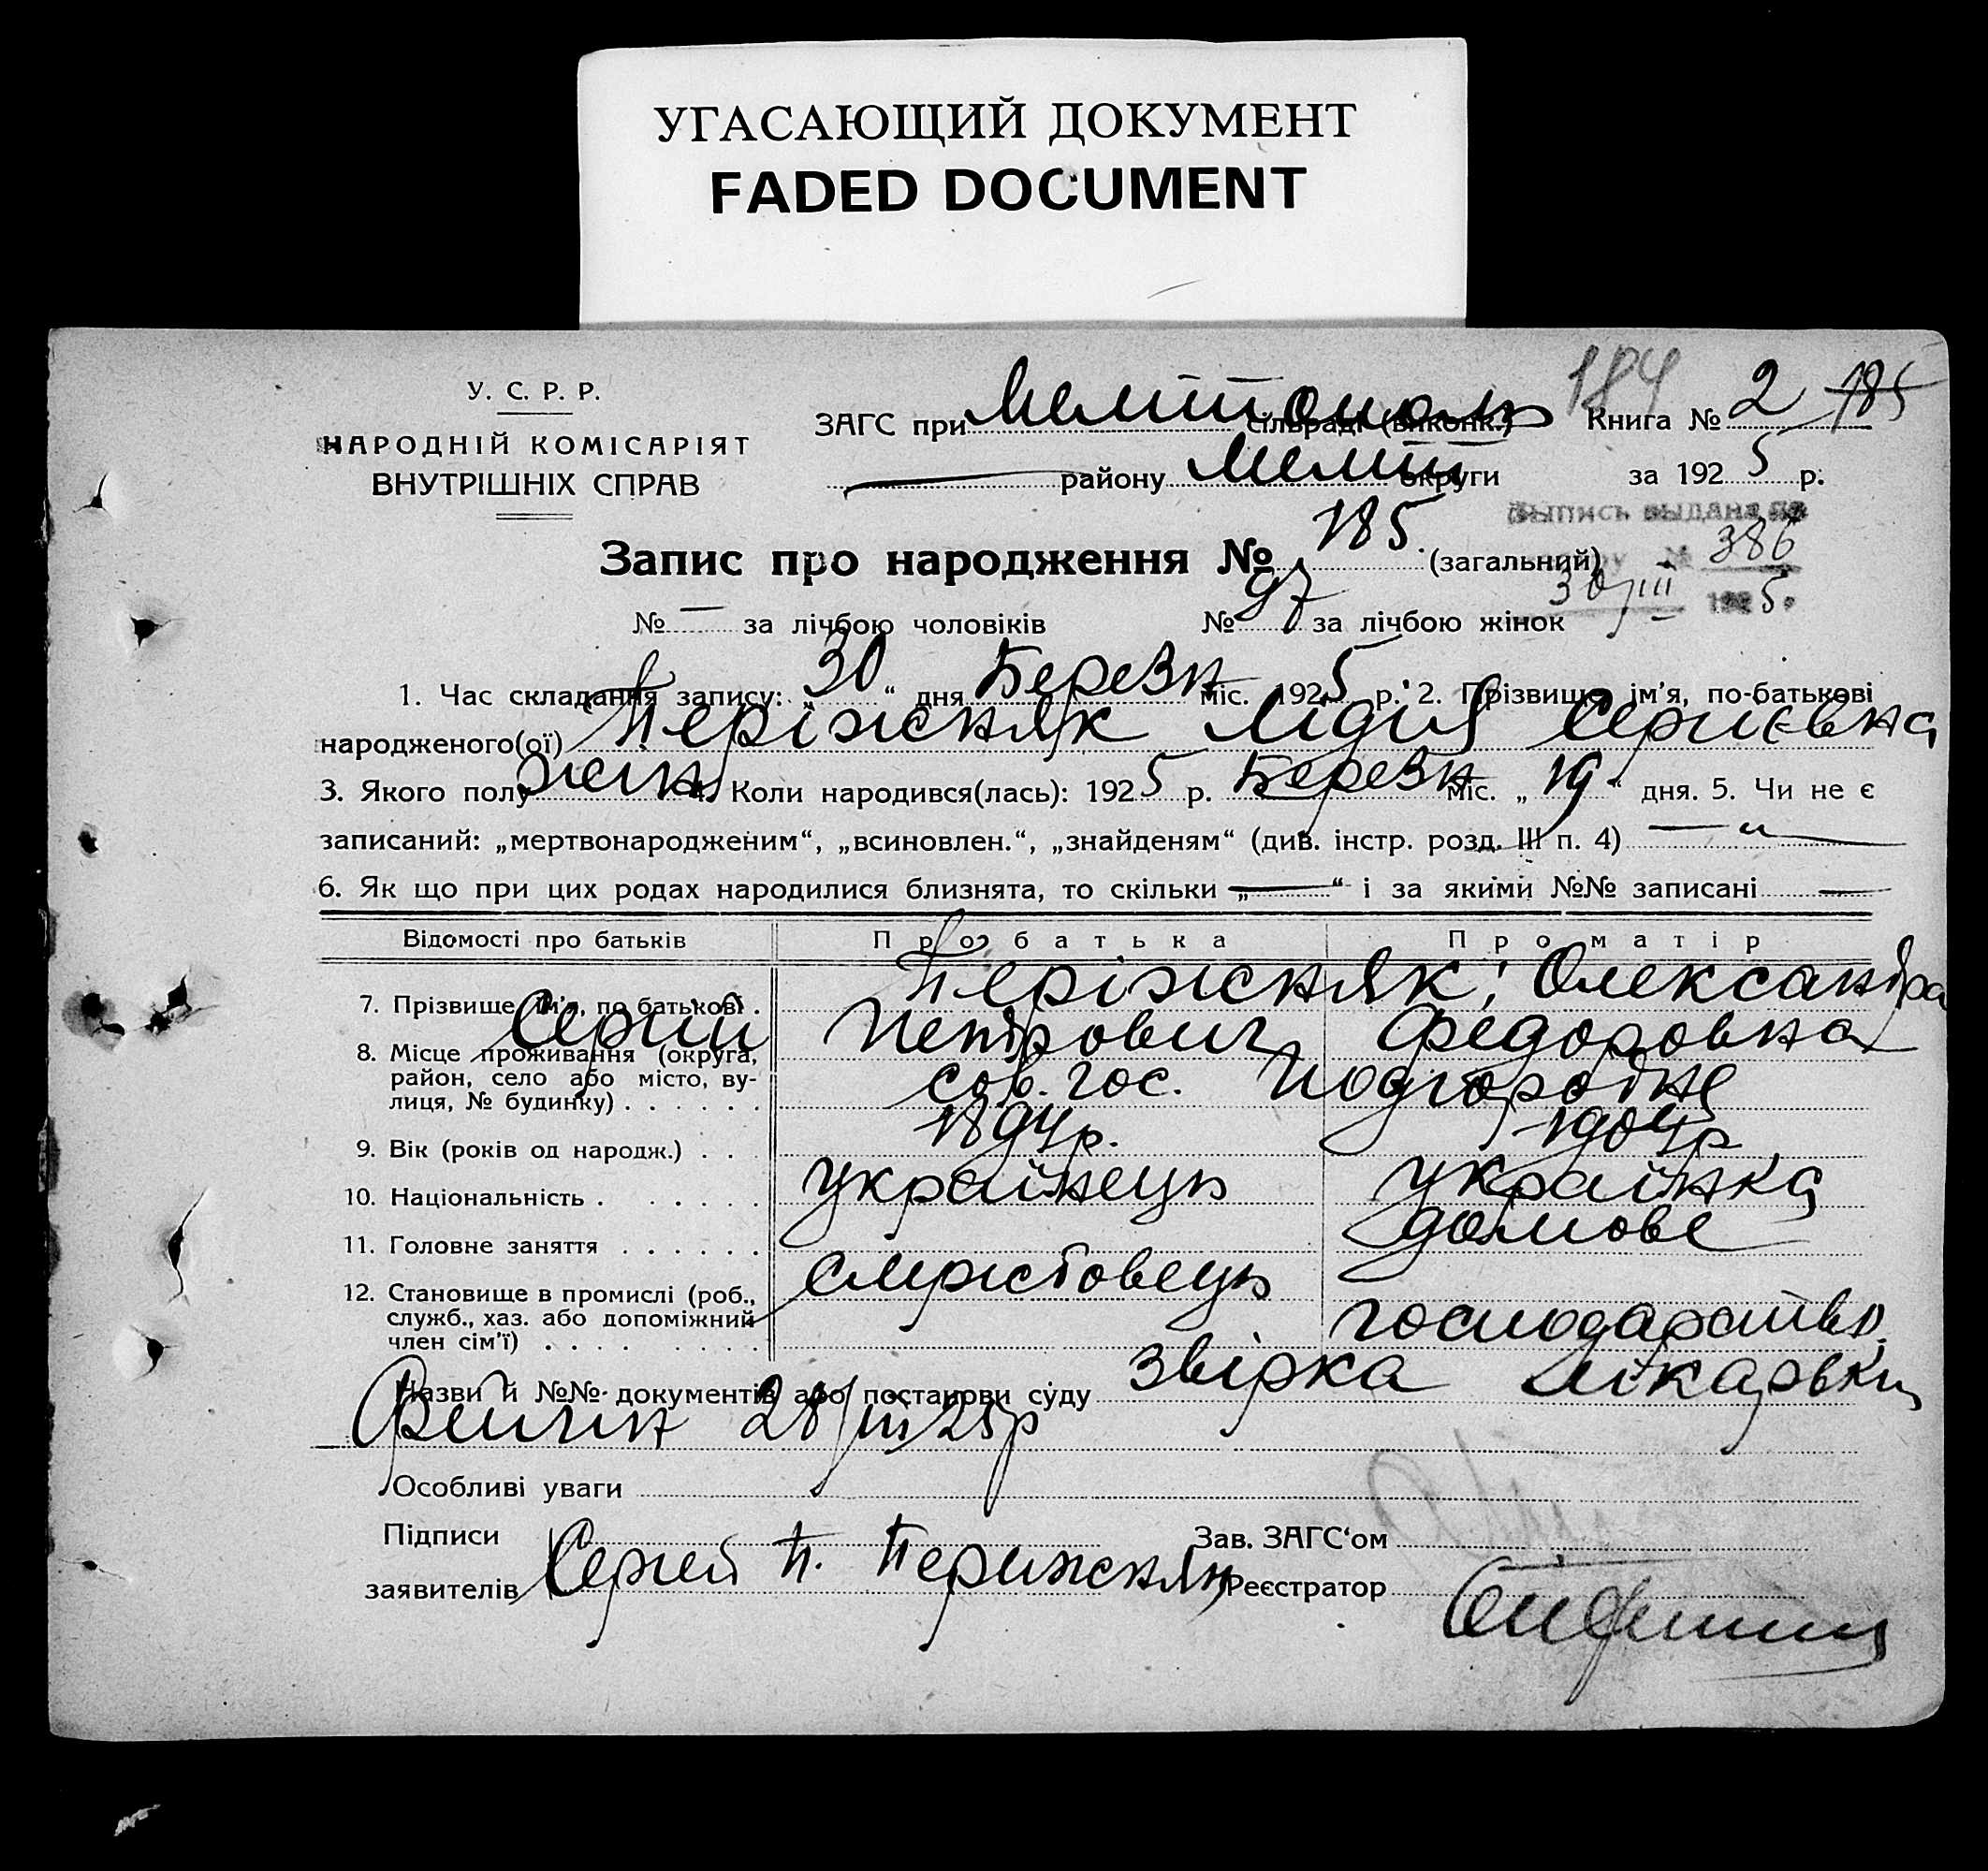 УГАСАЮЩИЙ ДОКУМЕНТ
FADED DOCUMENT
У. С. Р. Р.
НАРОДНІЙ КОМІСАРІЯТ
ВНУТРІШНІХ СПРАВ
ЗАГС при Мелітополь сільраді (виконк.)
184 Книга № 2 185
району Меліт округи за 1925 р.
Выпись выдана по
№ 386
30/III 1925.
Запис про народження № 185. (загальний)
№ — за лічбою чоловіків № 97 за лічбою жінок
1. Час складання запису: „30“ дня Березн міс. 1925 р. 2. Прізвище, ім’я, по-батькові
народженого(ої) Періжняк Лідия Сергиєвна
3. Якого полу жін 4. Коли народився(лась): 1925 р. Березн міс. „19“ дня. 5. Чи не є
записаний: „мертвонародженим“, „всиновлен.“, „знайденям“ (див. інстр. розд. III п. 4) — „ —
6. Як що при цих родах народилися близнята, то скільки „—“ і за якими №№ записані —
Відомості про батьків Про батька Про матір
7. Прізвище, ім’я, по батькові . Періжняк; Олександра
Сергий Петрович Федоровна
8. Місце проживання (округа,
район, село або місто, ву-
лиця, № будинку) . . . . . . сов. гос. Подгородне
9. Вік (років од народж.) . . . 1894р. 1904р
10. Національність . . . . . . українець українка
11. Головне заняття . . . . . . домове
12. Становище в промислі (роб.,
служб., хаз. або допоміжний
член сім’ї) . . . . . . . .
господарство.
Назви й №№ документів або постанови суду звірка лікарки
28/III 25р
Особливі уваги
Підписи Зав. ЗАГС‘ом
заявителів Сергей П. Перижняк Реєстратор